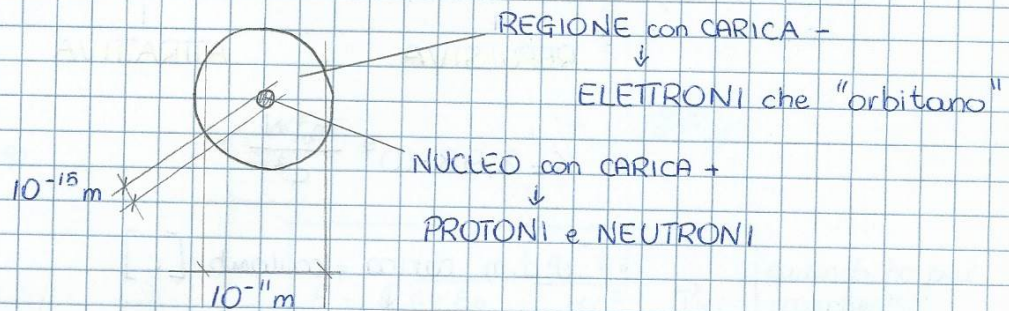 REGIONE con CARICA -
↓
ELETTRONI che "orbitano"
NUCLEO con CARICA +
↓
PROTONI e NEUTRONI
10⁻¹⁵ m
10⁻¹¹ m